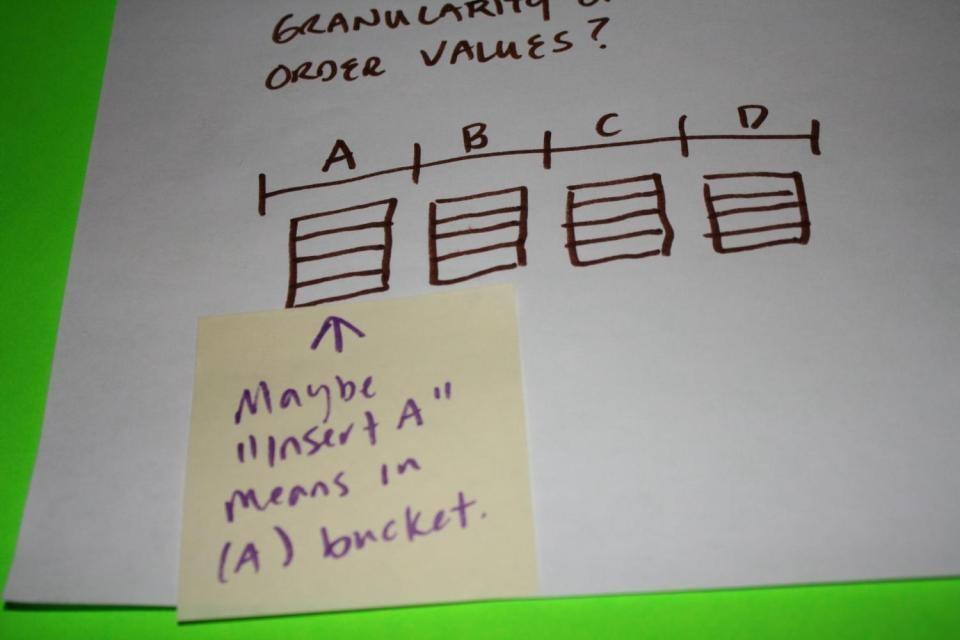 GRANULARITY
ORDER VALUES?
A B C D
↑
Maybe
"Insert A"
means in
(A) bucket.